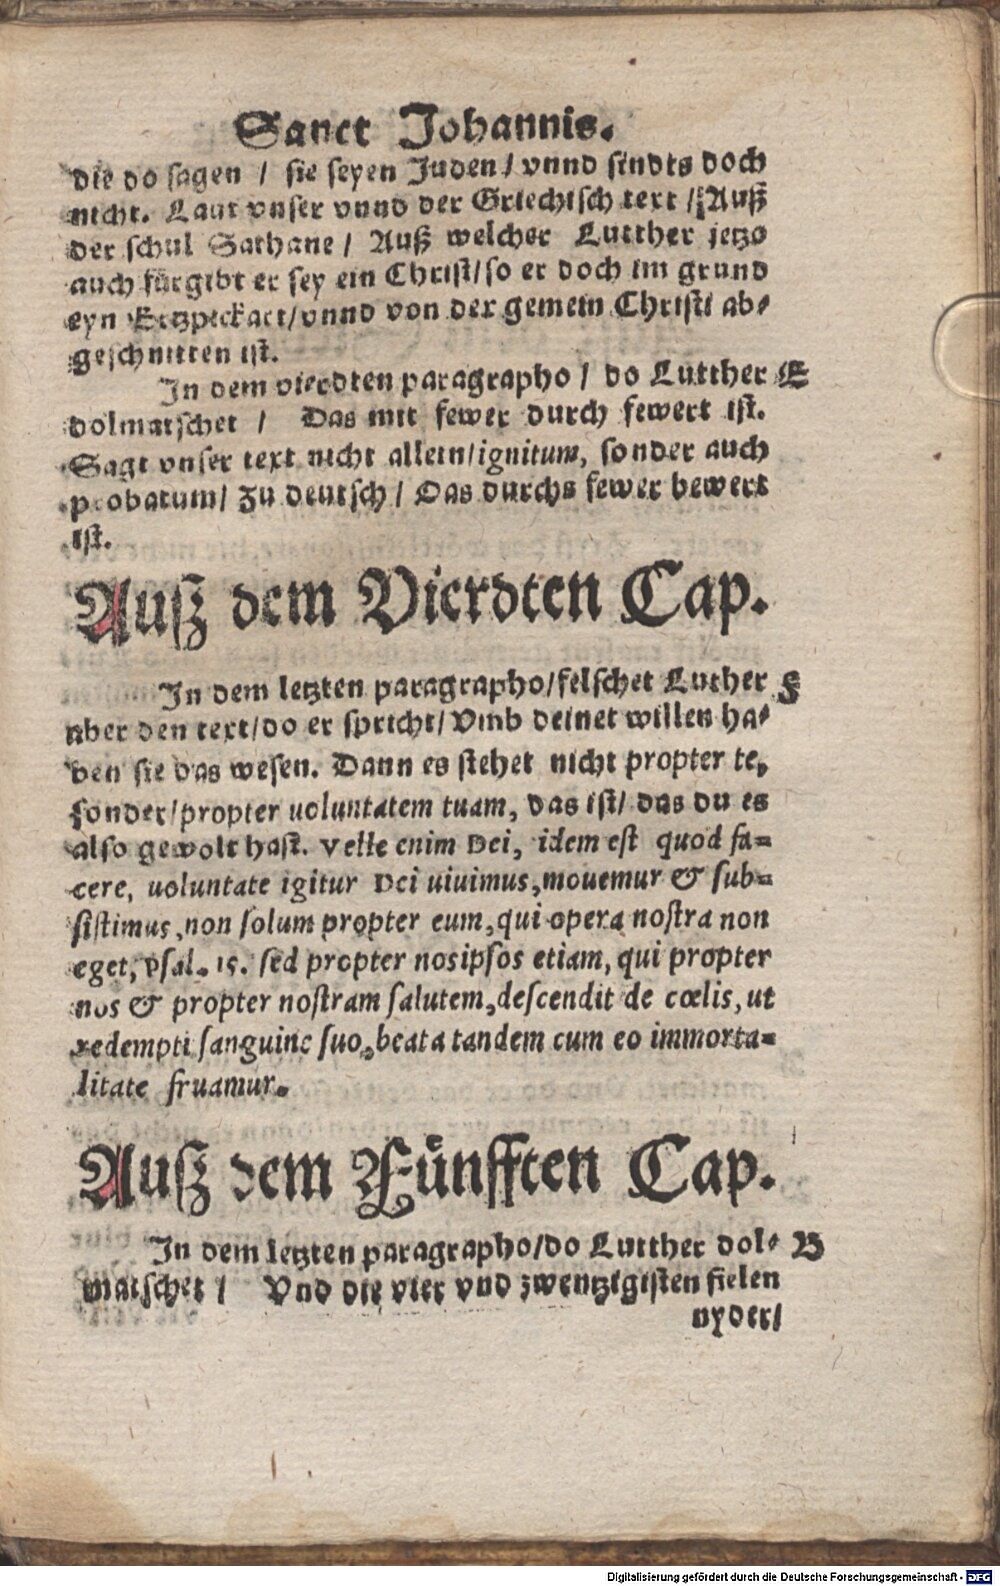 Sanct Johannis.
die do sagen / sie seyen Juden / vnnd sindts doch
nicht. Laut vnser vnnd der Griechisch text / Auß
der schul Sathane / Auß welcher Lutther jetzo
auch fürgibt er sey ein Christ/so er doch im grund
eyn Ertzpickart/vnnd von der gemein Christi ab⸗
geschnitten ist.
In dem vierdten paragrapho / do Lutther E
dolmatschet / Das mit fewer durch fewert ist.
Sagt vnser text nicht allein/ignitum, sonder auch
probatum/ Zu deutsch / Das durchs fewer bewert
ist.
Auß dem Vierdten Cap.
In dem letzten paragrapho/felschet Luther F
aber den text/do er spricht/ Vmb deinet willen ha⸗
ben sie das wesen. Dann es stehet nicht propter te,
sonder/propter uoluntatem tuam, das ist/ das du es
also gewolt hast. Velle enim Dei, idem est quod fa=
cere, uoluntate igitur Dei uiuimus, mouemur & sub=
sistimus, non solum propter eum, qui opera nostra non
eget, psal. 15. sed propter nosipsos etiam, qui propter
nos & propter nostram salutem, descendit de cœlis, ut
redempti sanguine suo, beata tandem cum eo immorta=
litate fruamur.
Auß dem Fünfften Cap.
In dem letzten paragrapho/do Lutther dol⸗ B
matschet / Vnd die vier vnd zwentzigisten fielen
nyder/
Digitalisierung gefördert durch die Deutsche Forschungsgemeinschaft - DFG